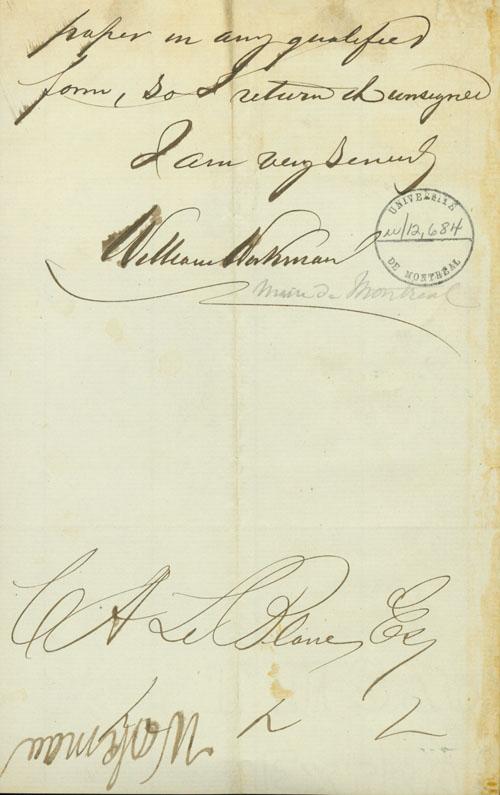 paper in any qualified
form, so I return it unsigned
I am very
William Workman
UNIVERSITÉ
u/12,684
DE MONTRÉAL
Maire de Montréal
C A Le Blanc Esq
Workman